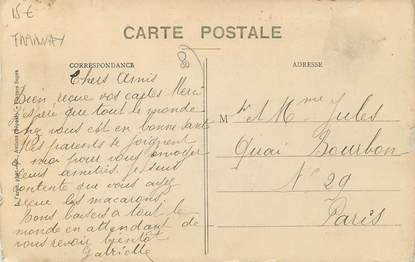 15€
TANNAY
CARTE POSTALE
CORRESPONDANCE
ADRESSE
Chers Amis
bien recue vos cartes Merci
J'espère que tout le monde
chez vous est en bonne santé
Mes parents se joignent
a moi pour vous envoyer
leurs amitiés. Je suis
contente que vous ayez
recue les macarons.
Bons baisers a tout le
monde en attendant de
vous revoir bientôt
Gabrielle
M r et Mme Jules
Quai Bourbon
N° 29
Paris